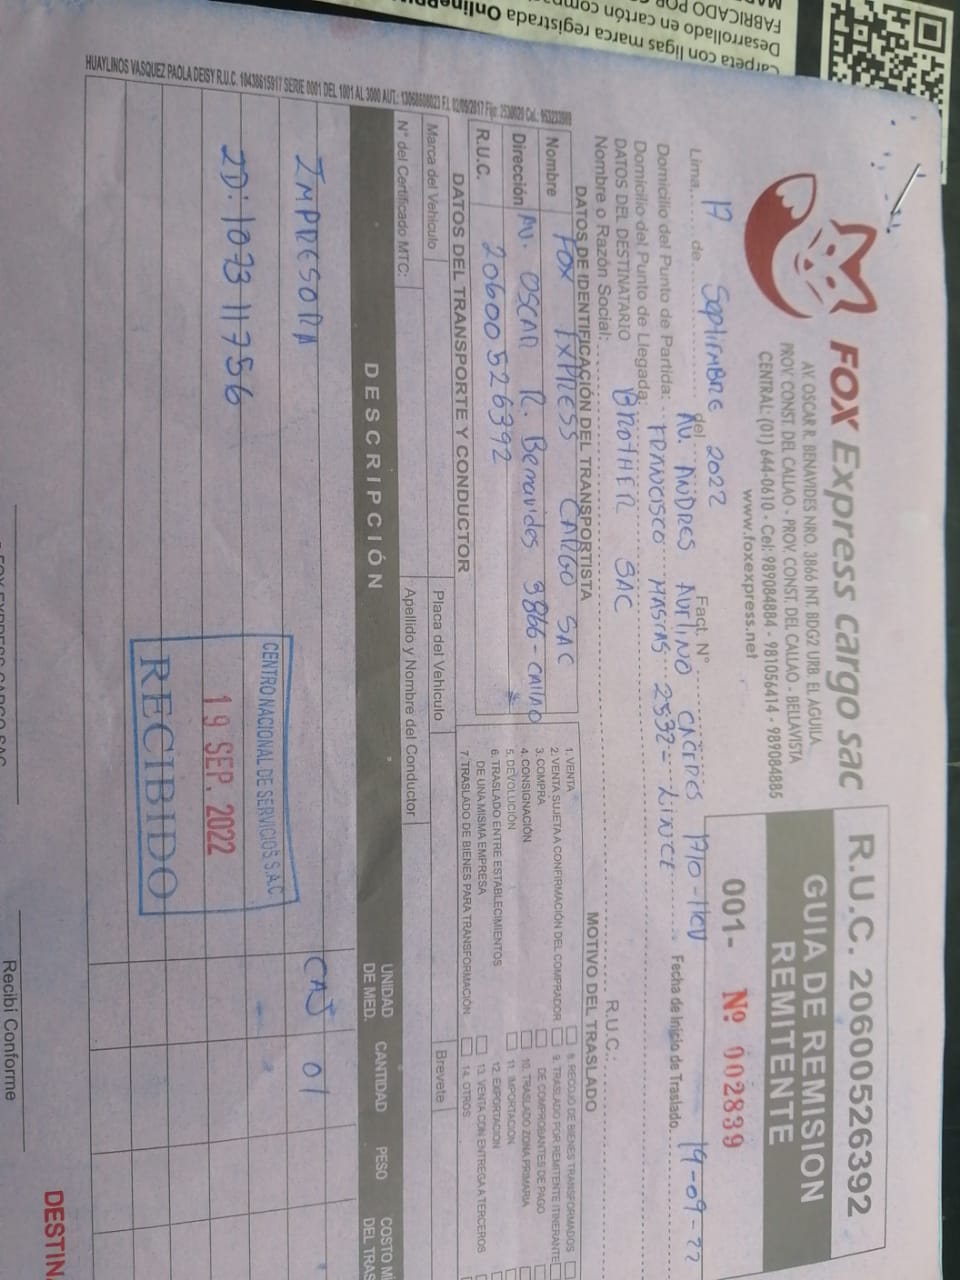 Carpeta con ligas marca registrada
Desarrollado en cartón
FABRICADO POR
HUAYLINOS VASQUEZ PAOLA DEISY R.U.C. 10438615917 SERIE 0001 DEL 1001 AL 3000 AUT.: 13060608023 F.I. 02/09/2017
FOX Express cargo sac
AV. OSCAR R. BENAVIDES NRO. 3866 INT. BDG2 URB. EL AGUILA
PROV. CONST. DEL CALLAO - PROV. CONST. DEL CALLAO - BELLAVISTA
CENTRAL: (01) 644-0610 - Cel: 989084884 - 981056414 - 989084885
www.foxexpress.net
R.U.C. 20600526392
GUIA DE REMISION
REMITENTE
001- Nº 002839
Lima, 17 de Septiembre del 2022 Fact. N°
Domicilio del Punto de Partida: AV. ANDRES AVELINO CACERES 1710 - HCV Fecha de Inicio de Traslado. 19-09-22
Domicilio del Punto de Llegada: FRANCISCO MASIAS 2532 - LINCE
DATOS DEL DESTINATARIO
Nombre o Razón Social: BROTHER SAC R.U.C.:
DATOS DE IDENTIFICACIÓN DEL TRANSPORTISTA
Nombre FOX EXPRESS CARGO SAC
Dirección AV. OSCAR R. Benavides 3866 - CALLAO
R.U.C. 20600526392
MOTIVO DEL TRASLADO
1. VENTA
2. VENTA SUJETA A CONFIRMACIÓN DEL COMPRADOR
3. COMPRA
4. CONSIGNACIÓN
5. DEVOLUCIÓN
6. TRASLADO ENTRE ESTABLECIMIENTOS
DE UNA MISMA EMPRESA
7. TRASLADO DE BIENES PARA TRANSFORMACIÓN
8. RECOJO DE BIENES TRANSFORMADOS
9. TRASLADO POR REMITENTE ITINERANTE
DE COMPROBANTES DE PAGO
10. TRASLADO ZONA PRIMARIA
11. IMPORTACION
12. EXPORTACION
13. VENTA CON ENTREGA A TERCEROS
14. OTROS
DATOS DEL TRANSPORTE Y CONDUCTOR
Marca del Vehiculo Placa del Vehiculo
N° del Certificado MTC: Apellido y Nombre del Conductor Brevete
DESCRIPCIÓN UNIDAD DE MED. CANTIDAD PESO COSTO
IMPRESORA CAJ 01
2D: 1073 11756
CENTRO NACIONAL DE SERVICIOS S.A.C
19 SEP. 2022
RECIBIDO
Recibí Conforme